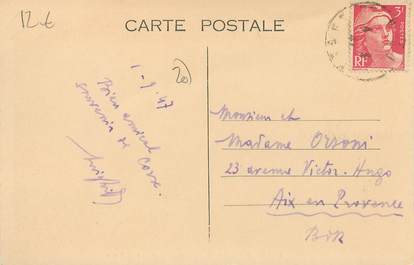 12.€
CARTE POSTALE
3F
POSTES
RF
20
1-9-47
Bien amical
souvenir de Corse.
Monsieur et
Madame Orsoni
23 avenue Victor-Hugo
Aix en Provence
BdR